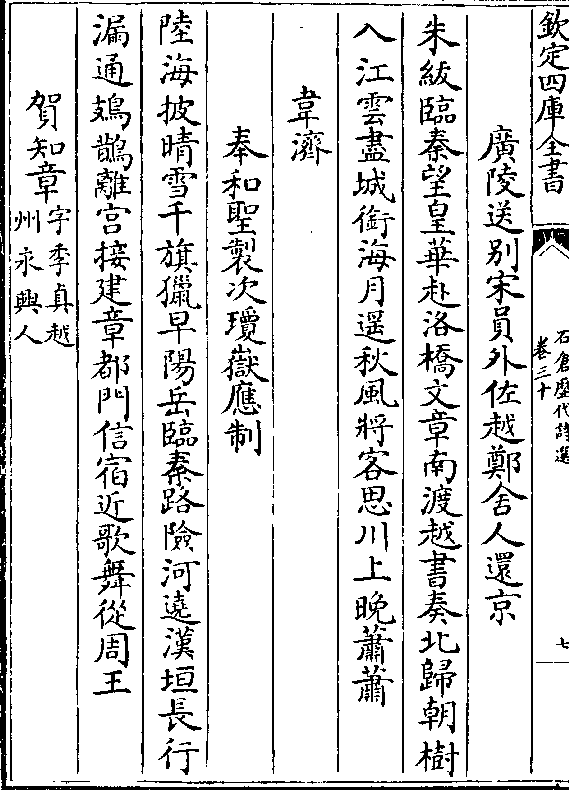 欽定四庫全書
石倉歷代詩選
卷三十
七
廣陵送别宋員外佐越鄭舍人還京
朱紱臨秦望皇華赴洛橋文章南渡越書奏北歸朝樹
入江雲盡城銜海月遥秋風將客思川上晚蕭蕭
韋濟
奉和聖製次瓊嶽應制
陸海披晴雪千旗獵早陽岳臨秦路險河遶漢垣長行
漏通鳷鵲離宫接建章都門信宿近歌舞從周王
賀知章字季真越
州永興人